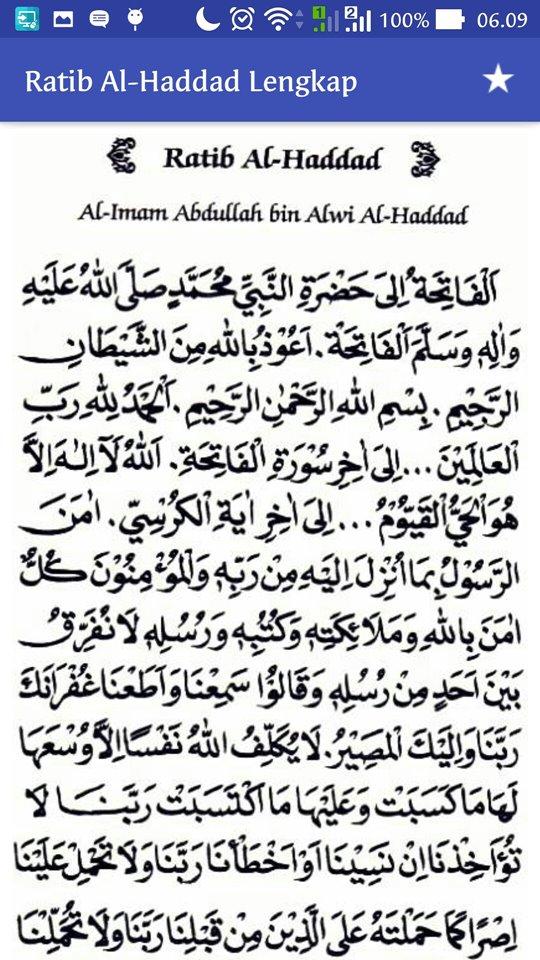 100% 06.09
Ratib Al-Haddad Lengkap
Ratib Al-Haddad
Al-Imam Abdullah bin Alwi Al-Haddad
اَلْفَاتِحَةُ اِلَى حَضْرَةِ النَّبِيِّ مُحَمَّدٍ صَلَّى اللهُ عَلَيْهِ
وَاٰلِهٖ وَسَلَّمَ اَلْفَاتِحَةْ. اَعُوْذُ بِاللهِ مِنَ الشَّيْطَانِ
الرَّجِيْمِ. بِسْمِ اللهِ الرَّحْمٰنِ الرَّحِيْمِ. اَلْحَمْدُ لِلّٰهِ رَبِّ
الْعَالَمِيْنَ ... اِلَى اٰخِرِ سُوْرَةِ الْفَاتِحَةِ. اَللهُ لَآ اِلٰهَ اِلَّا
هُوَ الْحَيُّ الْقَيُّوْمُ ... اِلَى اٰخِرِ اٰيَةِ الْكُرْسِيِّ. اٰمَنَ
الرَّسُوْلُ بِمَا اُنْزِلَ اِلَيْهِ مِنْ رَبِّهٖ وَالْمُؤْمِنُوْنَ كُلٌّ
اٰمَنَ بِاللهِ وَمَلَائِكَتِهٖ وَكُتُبِهٖ وَرُسُلِهٖ لَا نُفَرِّقُ
بَيْنَ اَحَدٍ مِنْ رُسُلِهٖ وَقَالُوْا سَمِعْنَا وَاَطَعْنَا غُفْرَانَكَ
رَبَّنَا وَاِلَيْكَ الْمَصِيْرُ. لَا يُكَلِّفُ اللهُ نَفْسًا اِلَّا وُسْعَهَا
لَهَا مَا كَسَبَتْ وَعَلَيْهَا مَا اكْتَسَبَتْ رَبَّنَا لَا
تُؤَاخِذْنَا اِنْ نَسِيْنَا اَوْ اَخْطَأْنَا رَبَّنَا وَلَا تَحْمِلْ عَلَيْنَا
اِصْرًا كَمَا حَمَلْتَهُ عَلَى الَّذِيْنَ مِنْ قَبْلِنَا رَبَّنَا وَلَا تُحَمِّلْنَا